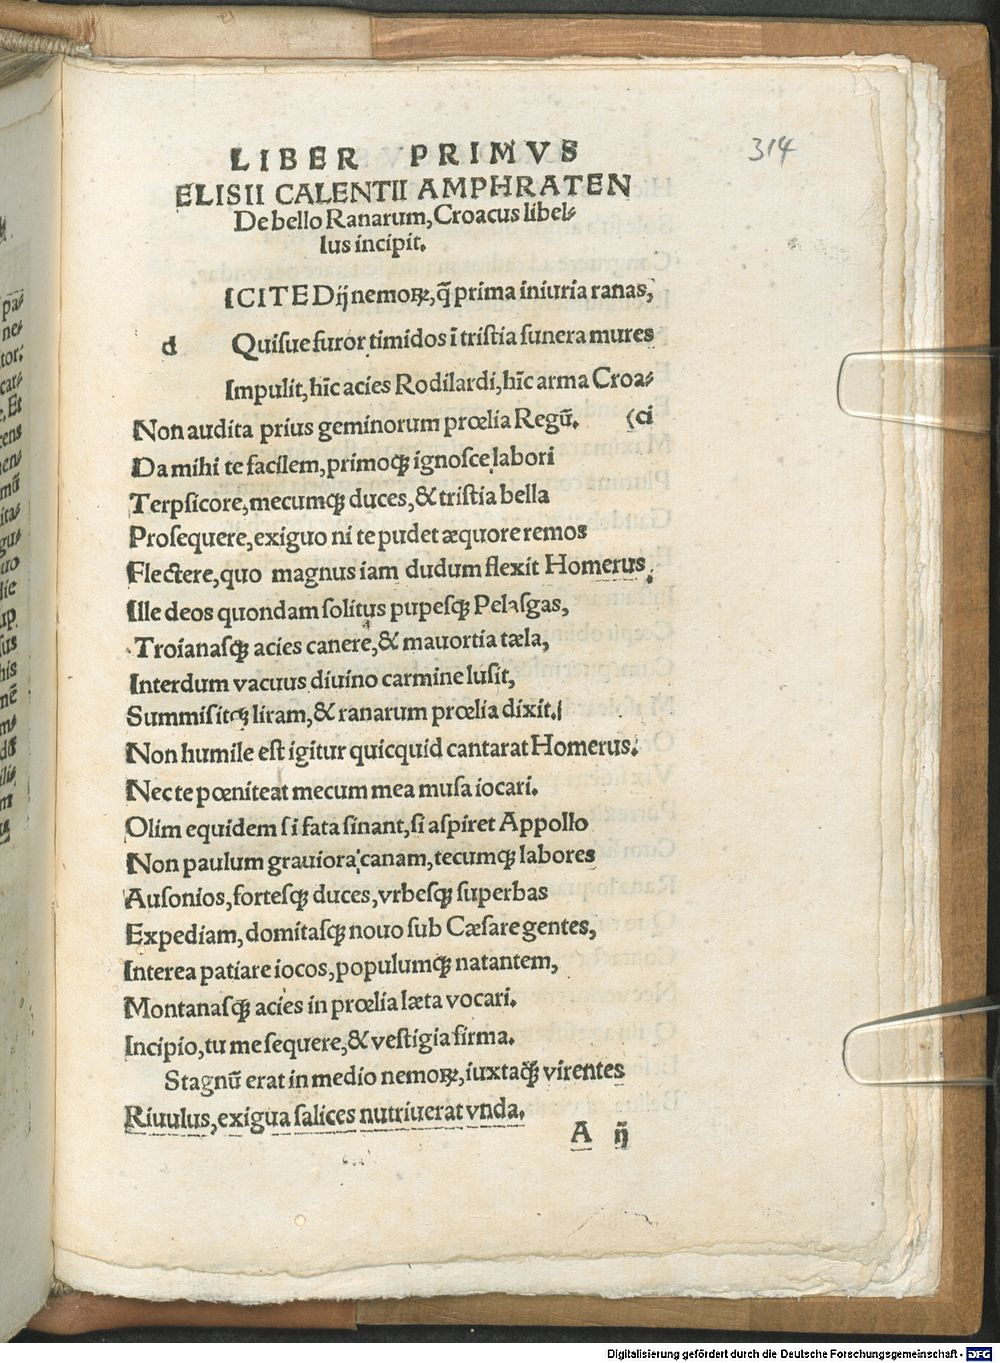 314
LIBER PRIMVS
ELISII CALENTII AMPHRATEN
De bello Ranarum, Croacus libel⸗
lus incipit.
ICITE Dij nemoꝝ, q̃ prima iniuria ranas,
d Quisue furor timidos ĩ tristia funera mures
Impulit, hĩc acies Rodilardi, hĩc arma Croa⸗
Non audita prius geminorum prœlia Regũ. (ci
Da mihi te facilem, primoqꝫ ignosce labori
Terpsicore, mecumqꝫ duces, & tristia bella
Prosequere, exiguo ni te pudet æquore remos
Flectere, quo magnus iam dudum flexit Homerus.
Ille deos quondam solitus pupesqꝫ Pelasgas,
Troianasqꝫ acies canere, & mauortia tæla,
Interdum vacuus diuino carmine lusit,
Summisitqꝫ liram, & ranarum prœlia dixit.
Non humile est igitur quicquid cantarat Homerus.
Nec te pœniteat mecum mea musa iocari.
Olim equidem si fata sinant, si aspiret Appollo
Non paulum grauiora canam, tecumqꝫ labores
Ausonios, fortesqꝫ duces, vrbesqꝫ superbas
Expediam, domitasqꝫ nouo sub Cæsare gentes,
Interea patiare iocos, populumqꝫ natantem,
Montanasqꝫ acies in prœlia læta vocari.
Incipio, tu me sequere, & vestigia firma.
Stagnũ erat in medio nemoꝝ, iuxtaqꝫ virentes
Riuulus, exigua salices nutriuerat vnda.
A ij
Digitalisierung gefördert durch die Deutsche Forschungsgemeinschaft - DFG